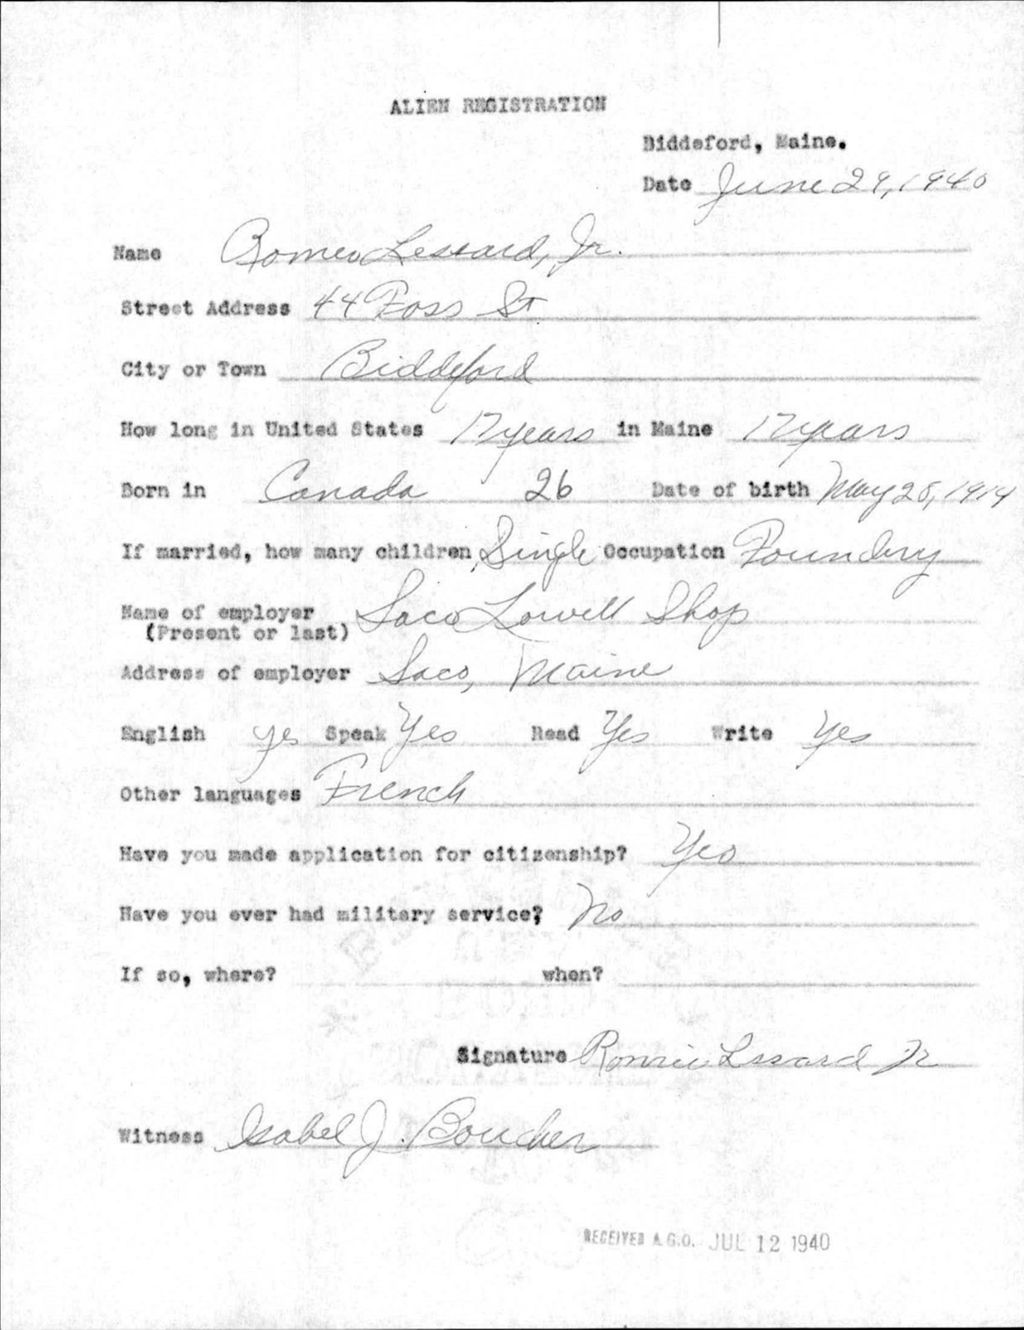 ALIEN REGISTRATION
Biddeford, Maine.
Date June 29, 1940
Name Romeo Lessard, Jr.
Street Address 44 Foss St
City or Town Biddeford
How long in United States 17 years in Maine 17 years
Born in Canada 26 Date of birth May 28, 1914
If married, how many children Single Occupation Foundry
Name of employer Saco Lowell Shop
(Present or last)
Address of employer Saco, Maine
English yes Speak Yes Read Yes Write Yes
Other languages French
Have you made application for citizenship? Yes
Have you ever had military service? No
If so, where? when?
Signature Romeo Lessard Jr
Witness Isabel J. Boucher
RECEIVED A.G.O. JUL 12 1940